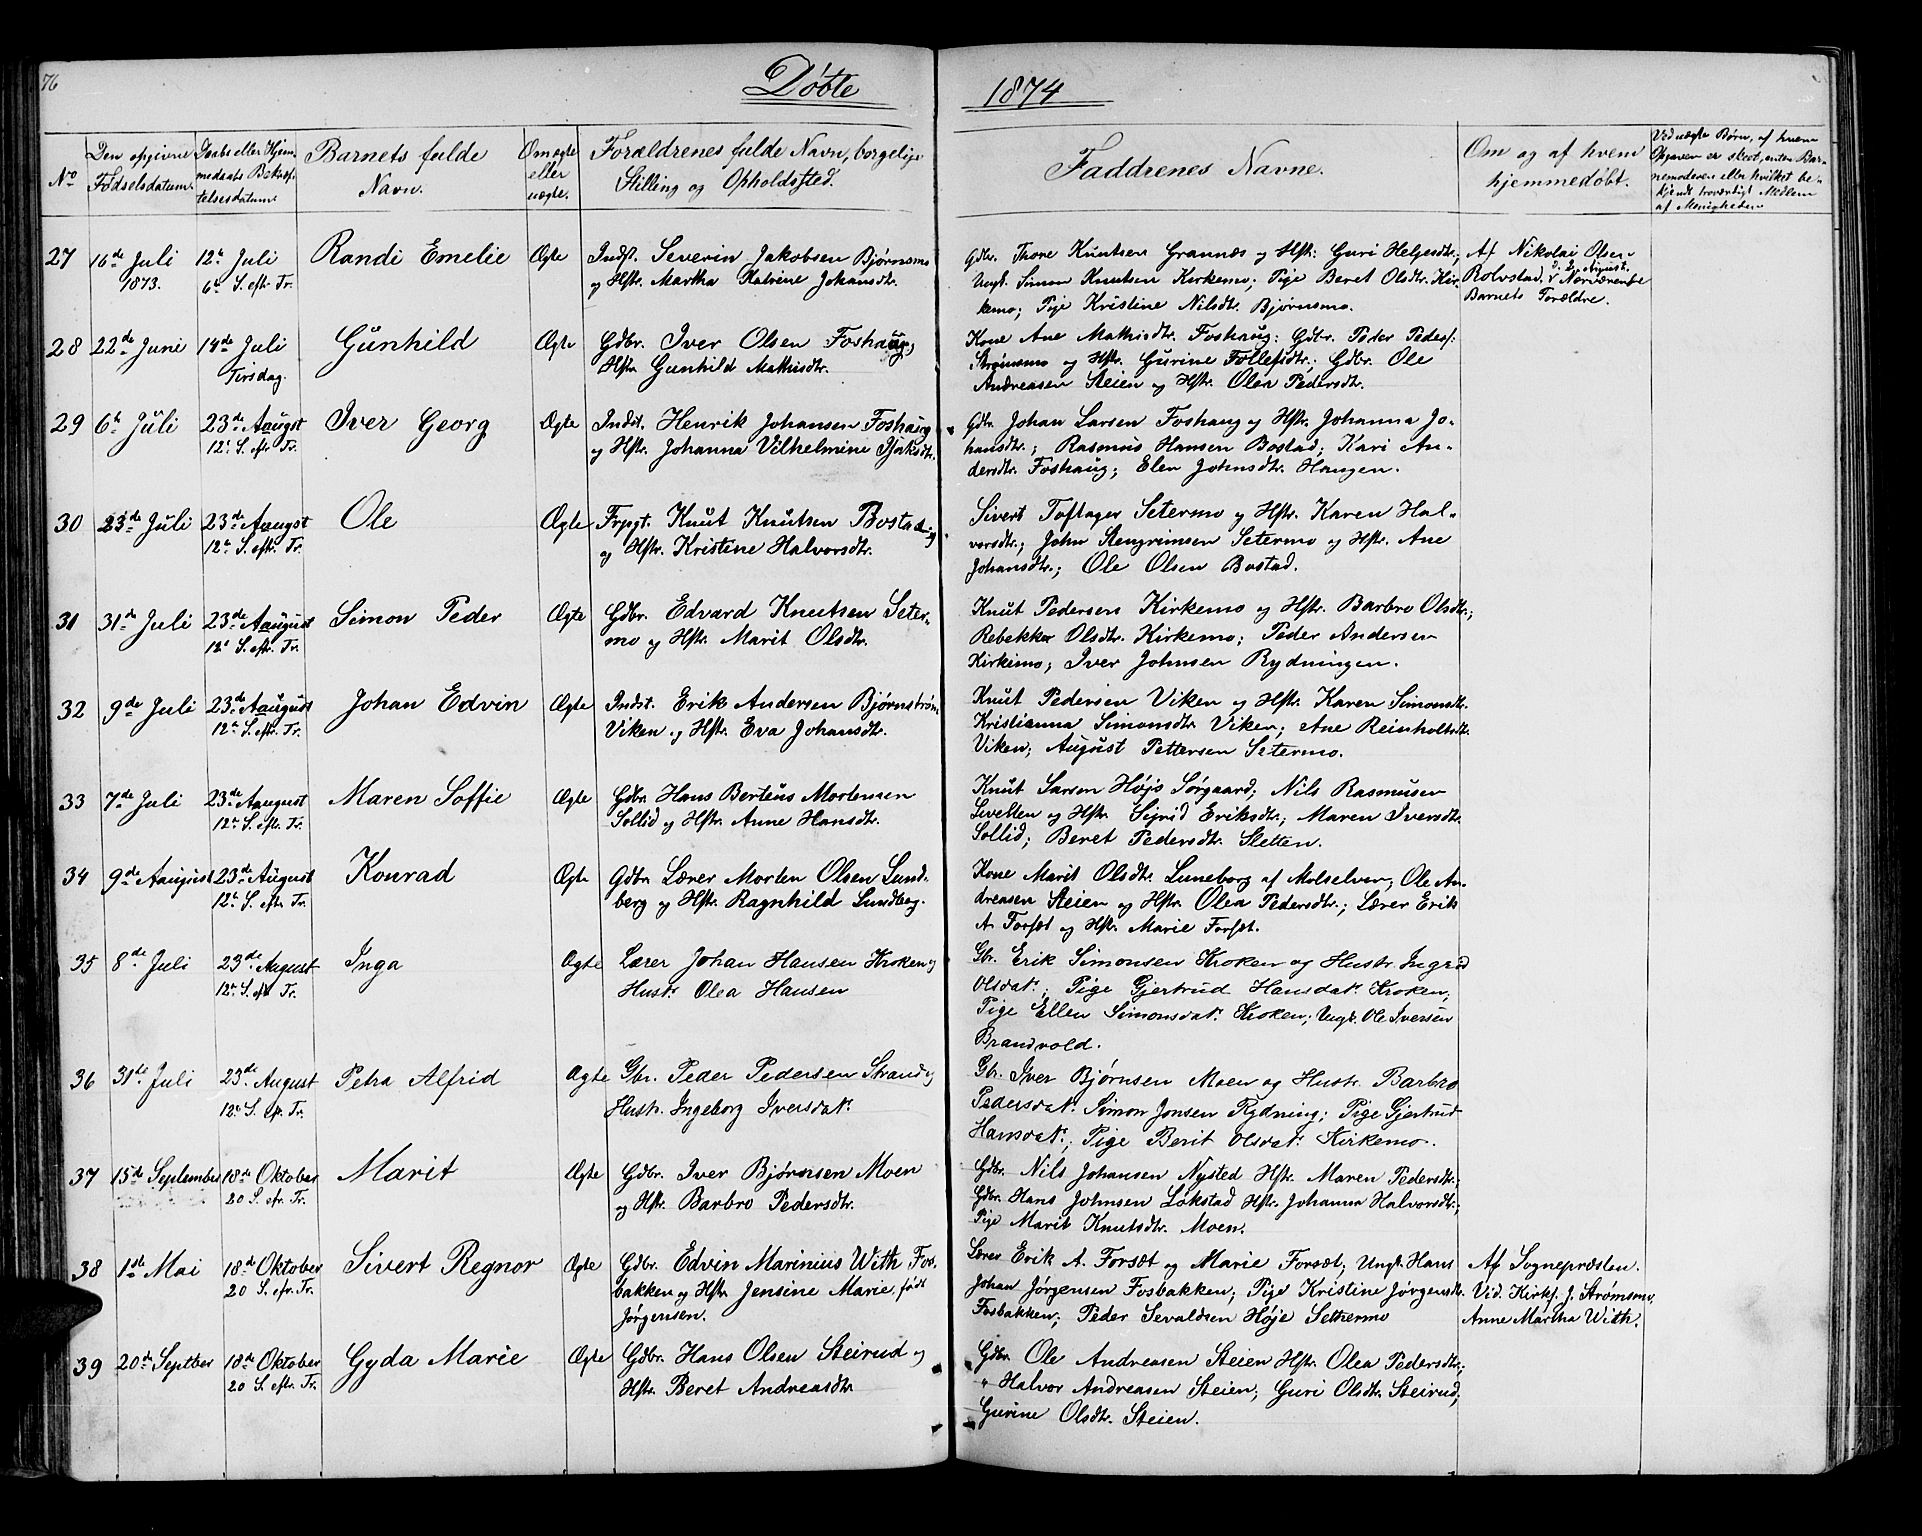 76
Døbte
1874
No
Den opgivne Fødselsdatum.
Daabs eller Hjemmedaabs Bekræftelsesdatum.
Barnets fulde Navn.
Om ægte eller uægte.
Forældrenes fulde Navn, borgelige Stilling og Opholdssted.
Faddrenes Navne.
Om og af hvem hjemmedøbt.
Ved uægte Børn, af hvem Opgaven er skeet, enten Barnemoderen eller hvilket bekjendt troværdigt Medlem af Menigheden
27 16de Juli 12te Juli Randi Emelie Ægte Indst. Severin Jakobsen Bjørnsmo Gdbr. Thore Knutsen Grannæs og Hstr. Guri Helgesdtr.; Af Nikolai Olsen
1873. 6te S. eftr. Tr. og Hstr. Martha Katrine Johansdtr. Ungk. Simon Knutsen Kirkemo; Pige Beret Olsdtr. Kir- Rolvstad, d. 2. August. v. Nærværende
kemo; Pige Kristine Nilsdtr. Bjørnsmo. Barnets Forældre.
28 22de Juni 14de Juli Gunhild Ægte Gdbr. Iver Olsen Foshaug, Kone Ane Mathisdtr. Foshaug; Gdbr. Peder Peders:
Tirsdag. Hstr. Gunhild Mathisdtr. Strømsmo og Hstr. Gurine Tollefsdtr.; Gdbr. Ole
Andreasen Steien og Hstr. Olea Pedersdtr.
29 6te Juli 23de Aaugst Iver Georg Ægte Indst. Henrik Johansen Foshaug Gdbr. Johan Larsen Foshaug og Hstr. Johanna Jo-
12te S. eftr. Tr. og Hstr. Johanna Vilhelmine hansdtr.; Rasmus Hansen Bostad; Kari An-
dersdtr. Foshaug; Elen Johnsdtr. Haugen.
30 23de Juli 23de Aaugst Ole Ægte Frpgt. Knut Knutsen Bostad Sivert Toftager Setermo og Hstr. Karen Hal-
12te S. eftr. Tr. og Hstr. Kristine Halvorsdtr. vorsdtr.; John Stengrimsen Setermo og Hstr. Ane
Johansdtr.; Ole Olsen Bostad.
31 31de Juli 23de Aaugust Simon Peder Ægte Gdbr. Edvard Knutsen Seter- Knut Pedersen Kirkemo og Hstr. Barbro Olsdtr.;
12te S. eftr. Tr. mo og Hstr. Marit Olsdtr. Rebekka Olsdtr. Kirkemo; Peder Andersen
Kirkemo; Iver Johnsen Rydningen.
32 9de Juli 23de Aaugust Johan Edvin Ægte Indst. Erik Andersen Bjørnstrøm Knut Pedersen Viken og Hstr. Karen Simonsdtr.
12te S. eftr. Tr. Viken og Hstr. Eva Johansdtr. Kristianna Simonsdtr Viken; Ane Reinholtsdtr.
Viken; August Pettersen Setermo.
33 7de Juli 23de Aaugust Maren Soffie Ægte Gdbr. Hans Berteus Mortensen Knut Larsen Højo Sørgaard; Nils Rasmusen
12te S. eftr. Tr. Sollid og Hstr. Anne Hansdtr. og Hstr. Sigrid Eriksdtr.; Maren Iversdtr.
Sollid; Beret Pedersdtr. Sletten.
34 9de Aaugust 23de Aaugust Konrad Ægte Gdbr. Lærer Morten Olsen Lund- Kone Marit Olsdtr. Luneborg af Molselven; Ole An-
12te S. eftr. Tr. berg og Hstr. Ragnhild Lundberg. dreasen Steien og Hstr. Olea Pedersdtr.; Lærer Erik
A. Forsæt og Hstr. Marie Forsæt.
35 8de Juli 23de August Inga Ægte Lærer Johan Hansen Kroken og Gbr. Erik Simonsen Kroken og Hustr. Ingrid
12te S. eft. Tr. Hustr. Olea Hansen Olsdatr.; Pige Gjertrud Hansdatr. Kroken;
Pige Ellen Simonsdatr. Kroken; Ungk. Ole Iversen
Brandvold.
36 31de Juli 23de August Petra Alfrid Ægte Gbr. Peder Pedersen Strand og Gbr. Iver Bjørnsen Moen og Hustr. Barbro
12te S. eftr. Tr. Hustr. Ingeborg Iversdatr. Pedersdatr. Simon Jonsen Rydning; Pige Gjertrud
Hansdatr.; Pige Berit Olsdatr. Kirkemo.
37 15de September 18de Oktober Marit Ægte Gdbr. Iver Bjørnsen Moen Gdbr. Nils Johansen Nysted Hstr. Maren Pedersdtr.;
20 S. eftr. Tr. og Hstr. Barbro Pedersdtr. Gdbr. Hans Johnsen Løkstad Hstr. Johanna Halvorsdtr.;
Pige Marit Knutsdtr. Moen.
38 1ste Mai 18de Oktober Sivert Regnor Ægte Gdbr. Edvin Marinius With Fos- Lærer Erik A. Forsæt og Marie Forsæt; Ungk. Hans Af Sognepræsten.
20 S. eftr. Tr. bakken og Hstr. Jensine Marie, født Johan Jørgensen Fosbakken; Pige Kristine Jørgensdtr. Vid. Kirks. J. Strømsmo,
Jørgensen. Fosbakken; Peder Sevaldsen Høje Sethermo Anne Martha With.
39 20de Septber 18de Oktober Gyda Marie Ægte Gdbr. Hans Olsen Steirud og Gdbr. Ole Andreasen Steien Hstr. Olea Pedersdtr.;
20 S. eftr. Tr. Hstr. Beret Andreasdtr " Halvor Andreasen Steien; Guri Olsdtr. Steirud;
Gurine Olsdtr. Steien.